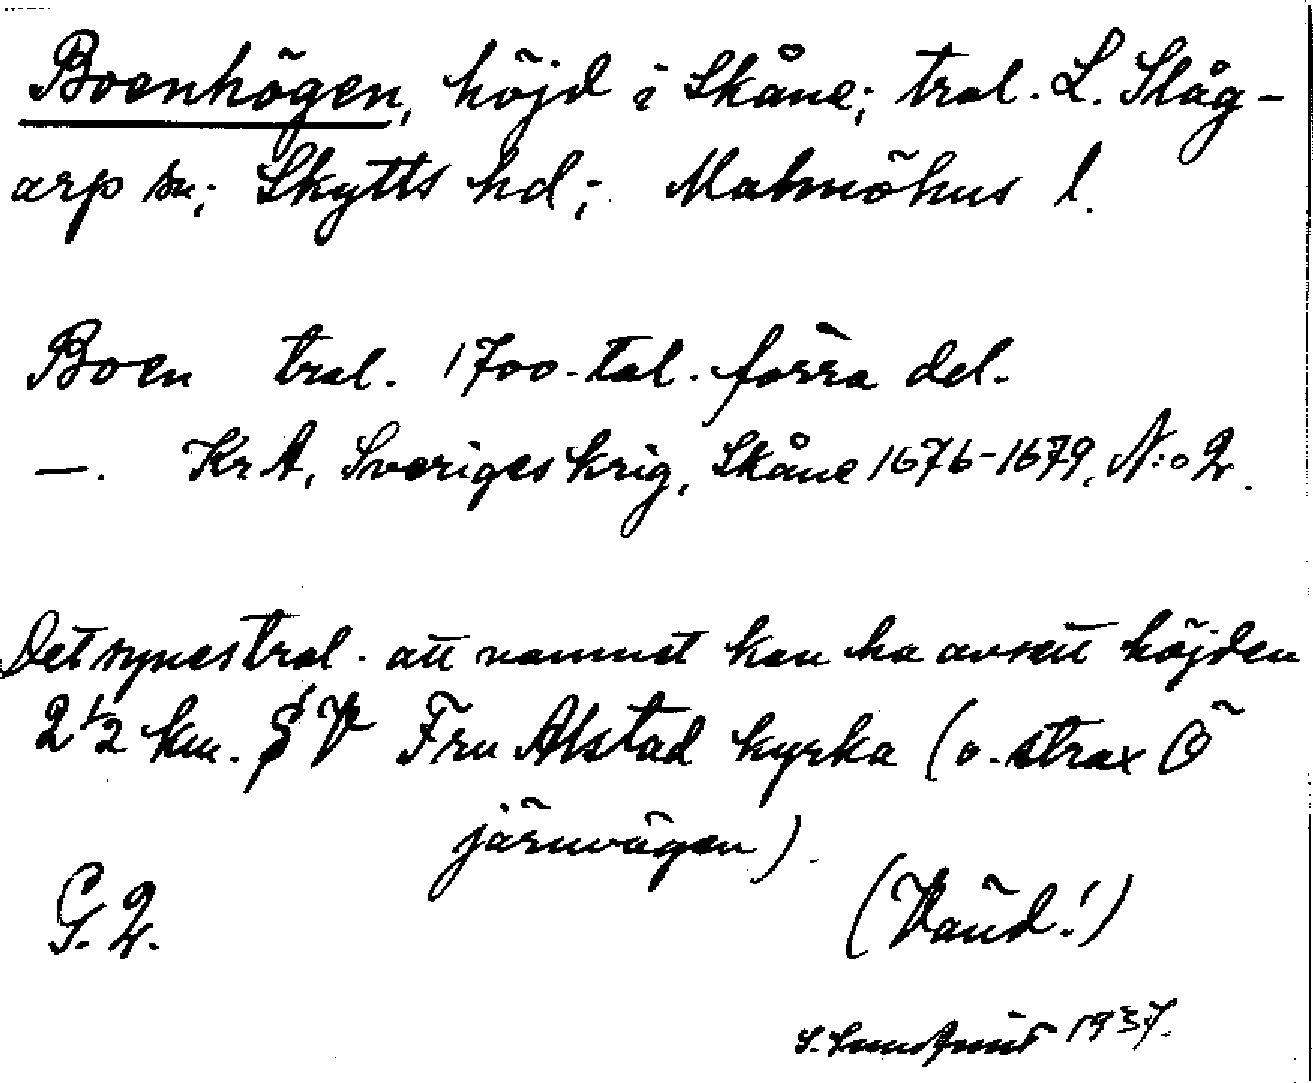 Boenhögen, höjd i Skåne; trol. L. Slåg-
arp sn; Skytts hd; Malmöhus l.
Boen trol. 1700-tal. förra del.
—. KrA, Sveriges krig, Skåne 1676-1679, N:o 2.
Det synes trol. att namnet kan ha avsett höjden
2 1/2 km. V Fru Alstad kyrka (o. strax Ö
järnvägen).
G. 2.
(Vänd!)
S. 1937.